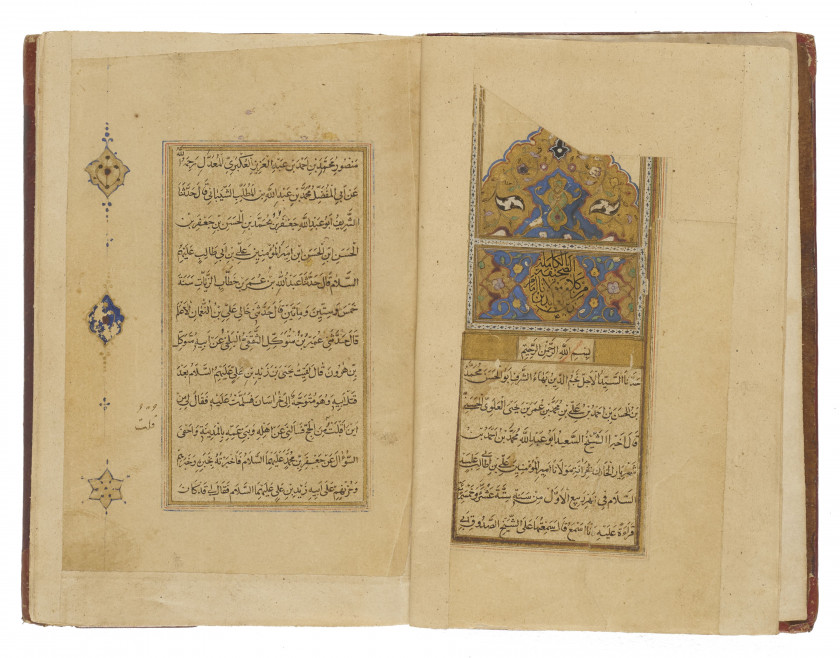 الصحيفة الكاملة
بسم الله الرحمن الرحيم
حدثنا السيد الاجل نجم الدين بهاء الشرف ابو الحسن محمد
بن الحسن بن احمد بن علي بن محمد بن عمر بن يحيى العلوي الحسيني
قال اخبرنا الشيخ السعيد ابو عبد الله محمد بن احمد بن
شهريار الخازن لخزانة مولانا امير المؤمنين علي بن ابي طالب عليه
السلام في شهر ربيع الاول من سنة ستة عشر وخمسمائة
قراءة عليه وانا اسمع قال سمعتها على الشيخ الصدوق ابي
منصور محمد بن احمد بن عبد العزيز العكبري المعدل رحمه الله
عن ابي المفضل محمد بن عبد الله بن المطلب الشيباني قال حدثنا
الشريف ابو عبد الله جعفر بن محمد بن الحسن بن جعفر بن
الحسن ابن الحسن ابن امير المؤمنين علي بن ابي طالب عليهم
السلام قال حدثنا عبد الله بن عمر بن خطاب الزيات سنة
خمس وستين ومايتين قال حدثني خالي علي بن النعمان الاعلم
قال حدثني عمير بن متوكل الثقفي البلخي عن ابيه متوكل
بن هرون قال لقيت يحيى بن زيد بن علي عليهم السلام بعد
قتل ابيه وهو متوجه الى خراسان فسلمت عليه فقال لي من
اين اقبلت قلت من الحج فسألني عن اهله وبني عمه بالمدينة واحفى
السؤال عن جعفر بن محمد عليهما السلام فاخبرته بخبره وخبرهم
وحزنهم على ابيه زيد بن علي عليهما السلام فقال لي قد كان
قلت